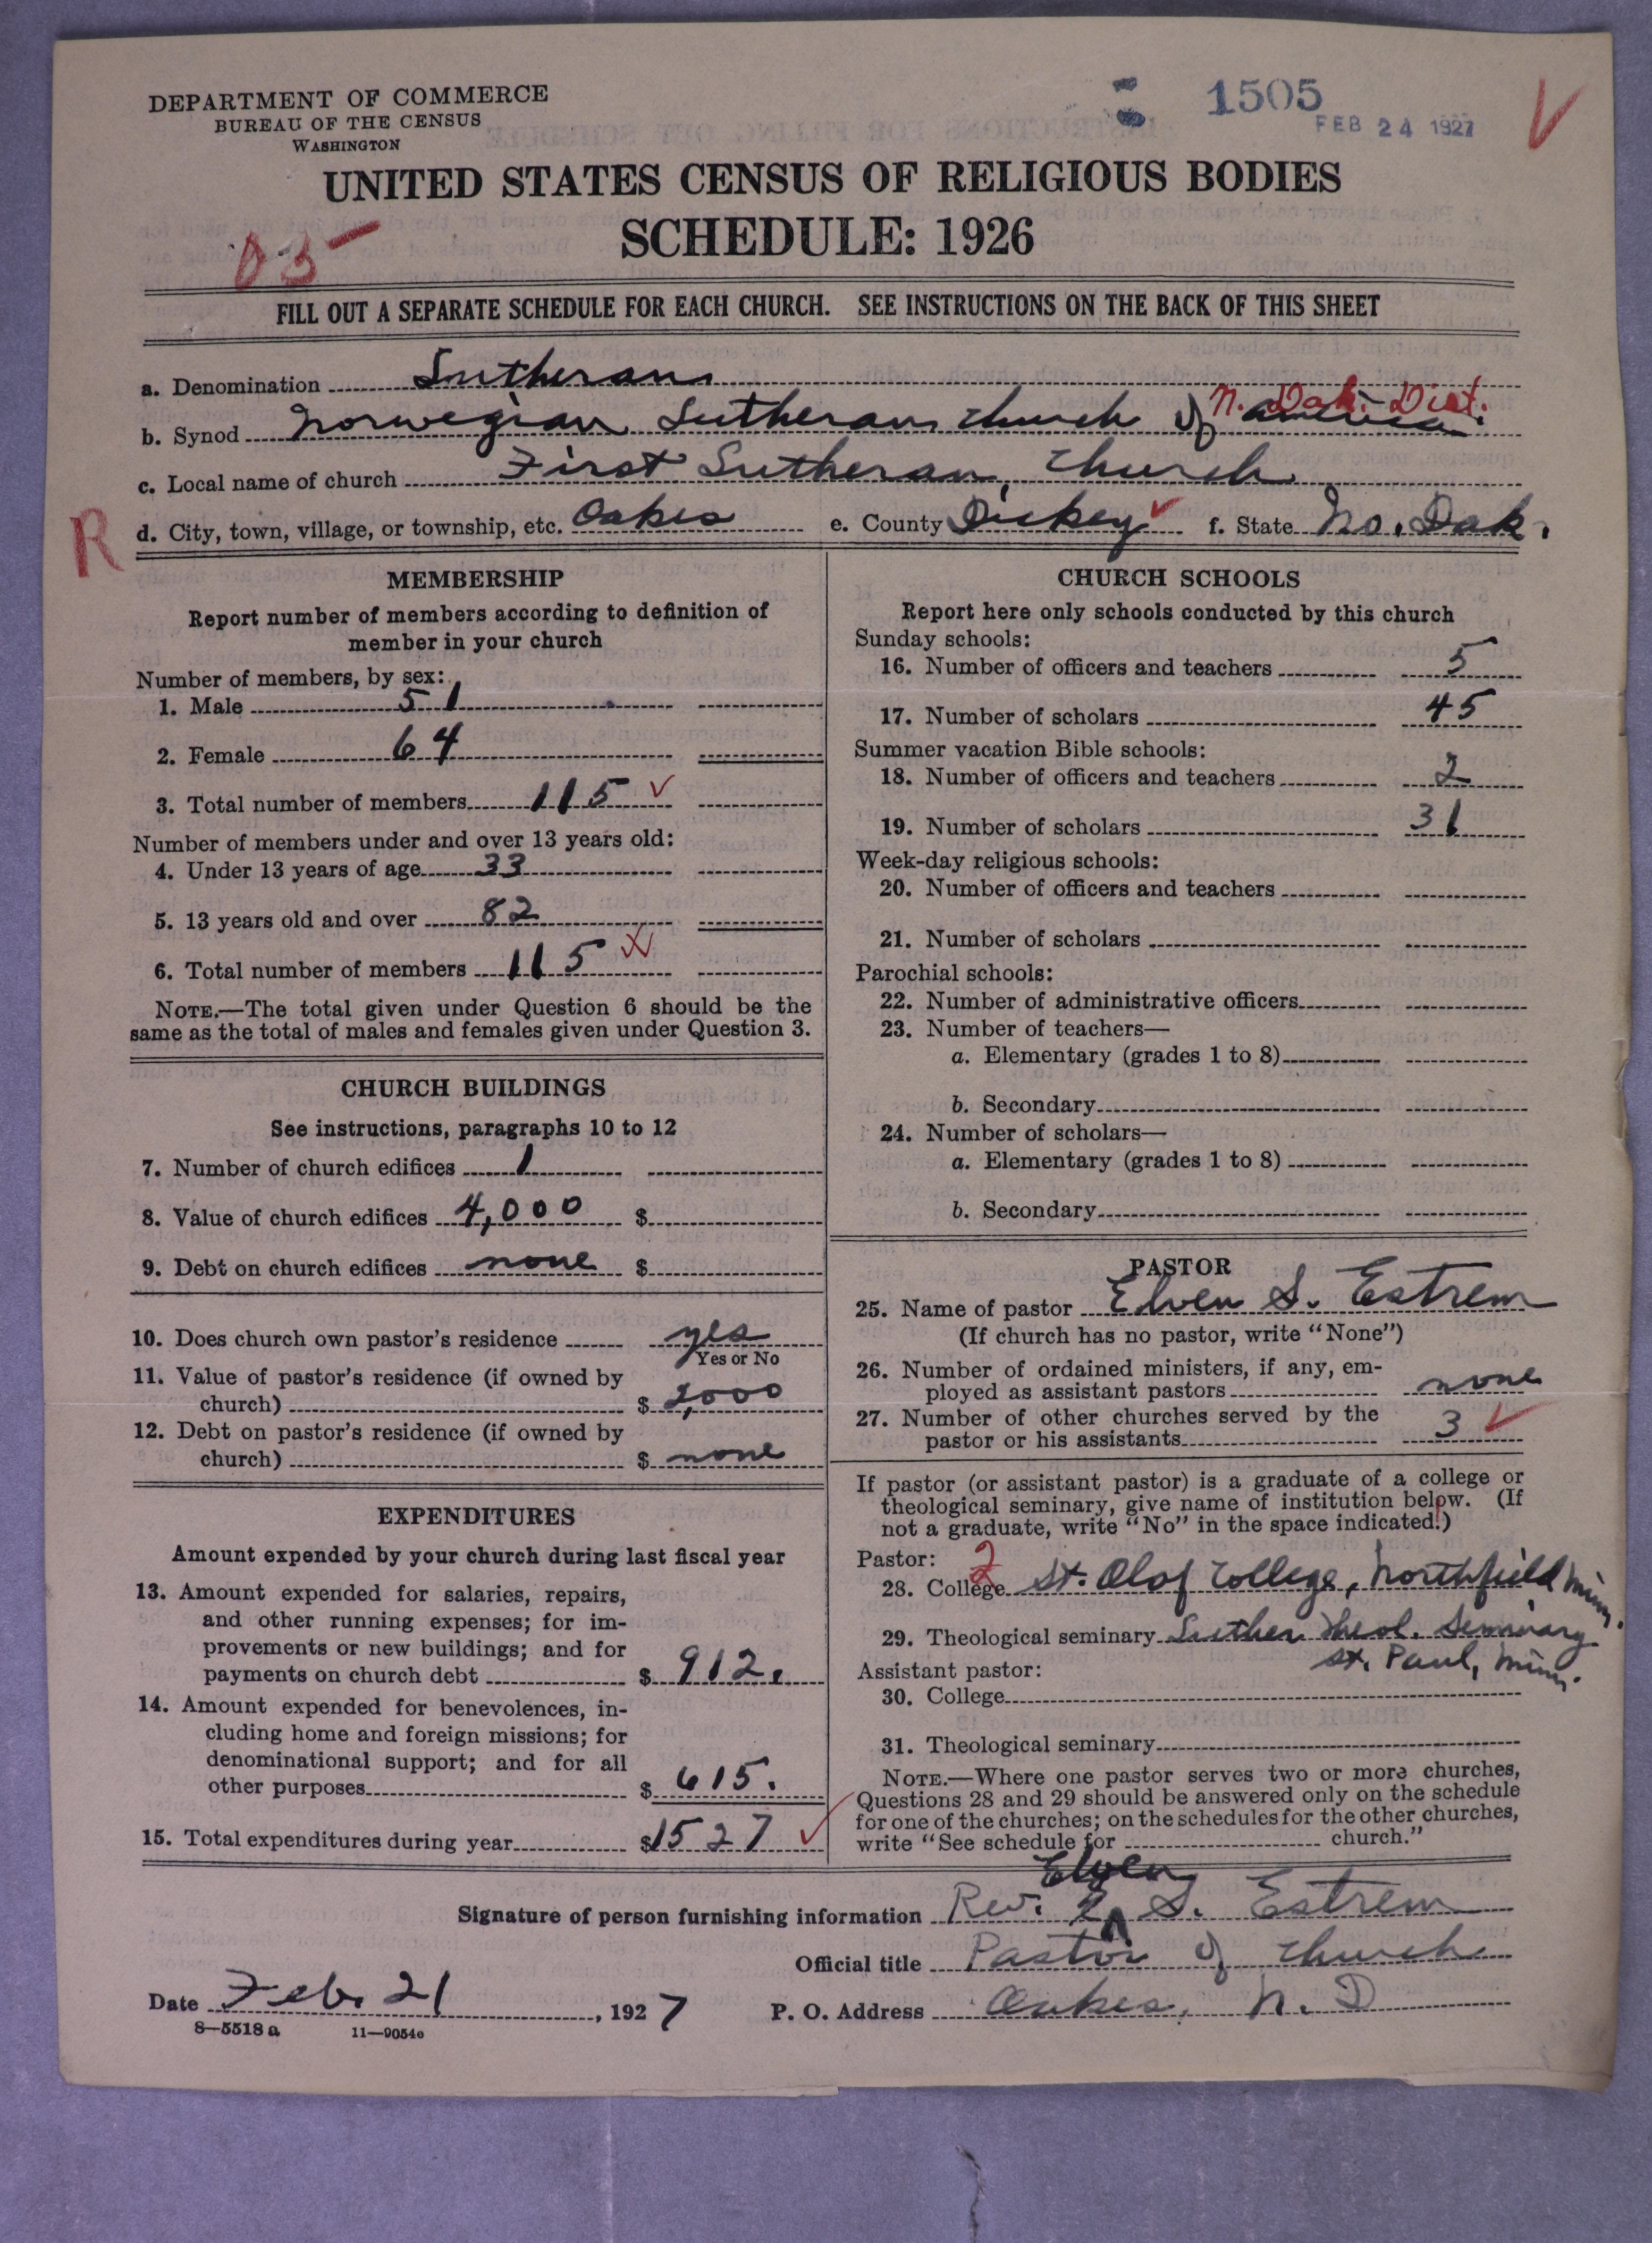 DEPARTMENT OF COMMERCE
BUREAU OF THE CENSUS
WASHINGTON
1505
FEB 24 1927
UNITED STATES CENSUS OF RELIGIOUS BODIES
SCHEDULE: 1926
03
FILL OUT A SEPARATE SCHEDULE FOR EACH CHURCH. SEE INSTRUCTIONS ON THE BACK OF THIS SHEET
a. Denomination Lutheran
N. Dak. Dist.
b. Synod Norwegian Lutheran Church of America.
c. Local name of church First Lutheran Church
R
d. City, town, village, or township, etc. Oakes e. County Dickey f. State No. Dak.
MEMBERSHIP
Report number of members according to definition of
member in your church
Number of members, by sex:
1. Male 51
2. Female 64
3. Total number of members 115
Number of members under and over 13 years old:
4. Under 13 years of age 33
5. 13 years old and over 82
6. Total number of members 115
NOTE.—The total given under Question 6 should be the
same as the total of males and females given under Question 3.
CHURCH BUILDINGS
See instructions, paragraphs 10 to 12
7. Number of church edifices 1
8. Value of church edifices 4,000 $
9. Debt on church edifices none $
10. Does church own pastor's residence yes
Yes or No
11. Value of pastor's residence (if owned by
church) $ 2,000
12. Debt on pastor's residence (if owned by
church) $ none
EXPENDITURES
Amount expended by your church during last fiscal year
13. Amount expended for salaries, repairs,
and other running expenses; for im-
provements or new buildings; and for
payments on church debt $ 912.
14. Amount expended for benevolences, in-
cluding home and foreign missions; for
denominational support; and for all
other purposes $ 615.
15. Total expenditures during year $1527
CHURCH SCHOOLS
Report here only schools conducted by this church
Sunday schools:
16. Number of officers and teachers 5
17. Number of scholars 45
Summer vacation Bible schools:
18. Number of officers and teachers 2
19. Number of scholars 31
Week-day religious schools:
20. Number of officers and teachers
21. Number of scholars
Parochial schools:
22. Number of administrative officers
23. Number of teachers—
a. Elementary (grades 1 to 8)
b. Secondary
24. Number of scholars—
a. Elementary (grades 1 to 8)
b. Secondary
PASTOR
25. Name of pastor Elven S. Estrem
(If church has no pastor, write "None")
26. Number of ordained ministers, if any, em-
ployed as assistant pastors none
27. Number of other churches served by the
pastor or his assistants 3
If pastor (or assistant pastor) is a graduate of a college or
theological seminary, give name of institution below. (If
not a graduate, write "No" in the space indicated.)
Pastor: 2
28. College St. Olaf College, Northfield Minn.
29. Theological seminary Luther Theol. Seminary
St. Paul, Minn.
Assistant pastor:
30. College
31. Theological seminary
NOTE.—Where one pastor serves two or more churches,
Questions 28 and 29 should be answered only on the schedule
for one of the churches; on the schedules for the other churches,
write "See schedule for church."
Elven
Signature of person furnishing information Rev. E S. Estrem
Official title Pastor of Church
Date Feb. 21, 1927 P. O. Address Oakes, N. D
8—5518 a 11—9054e